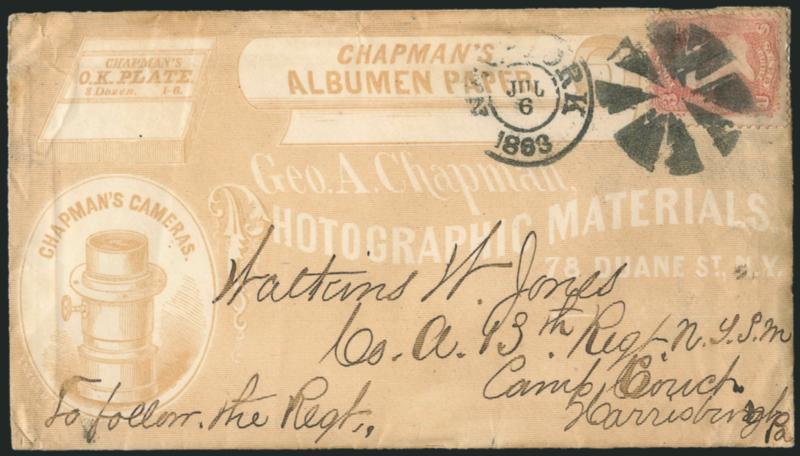 CHAPMAN'S
O.K. PLATE.
3 Dozen. 1-6.
CHAPMAN'S
ALBUMEN PAPER
NEW-YORK
JUL
6
1863
3
U.S.
CHAPMAN'S CAMERAS.
Geo. A. Chapman,
PHOTOGRAPHIC MATERIALS,
78 DUANE ST. N.Y.
Watkins W. Jones
Co. A. 13th Regt. N.Y.S.M
Camp Couch
Harrisburgh
Pa
To follow. the Regt.,